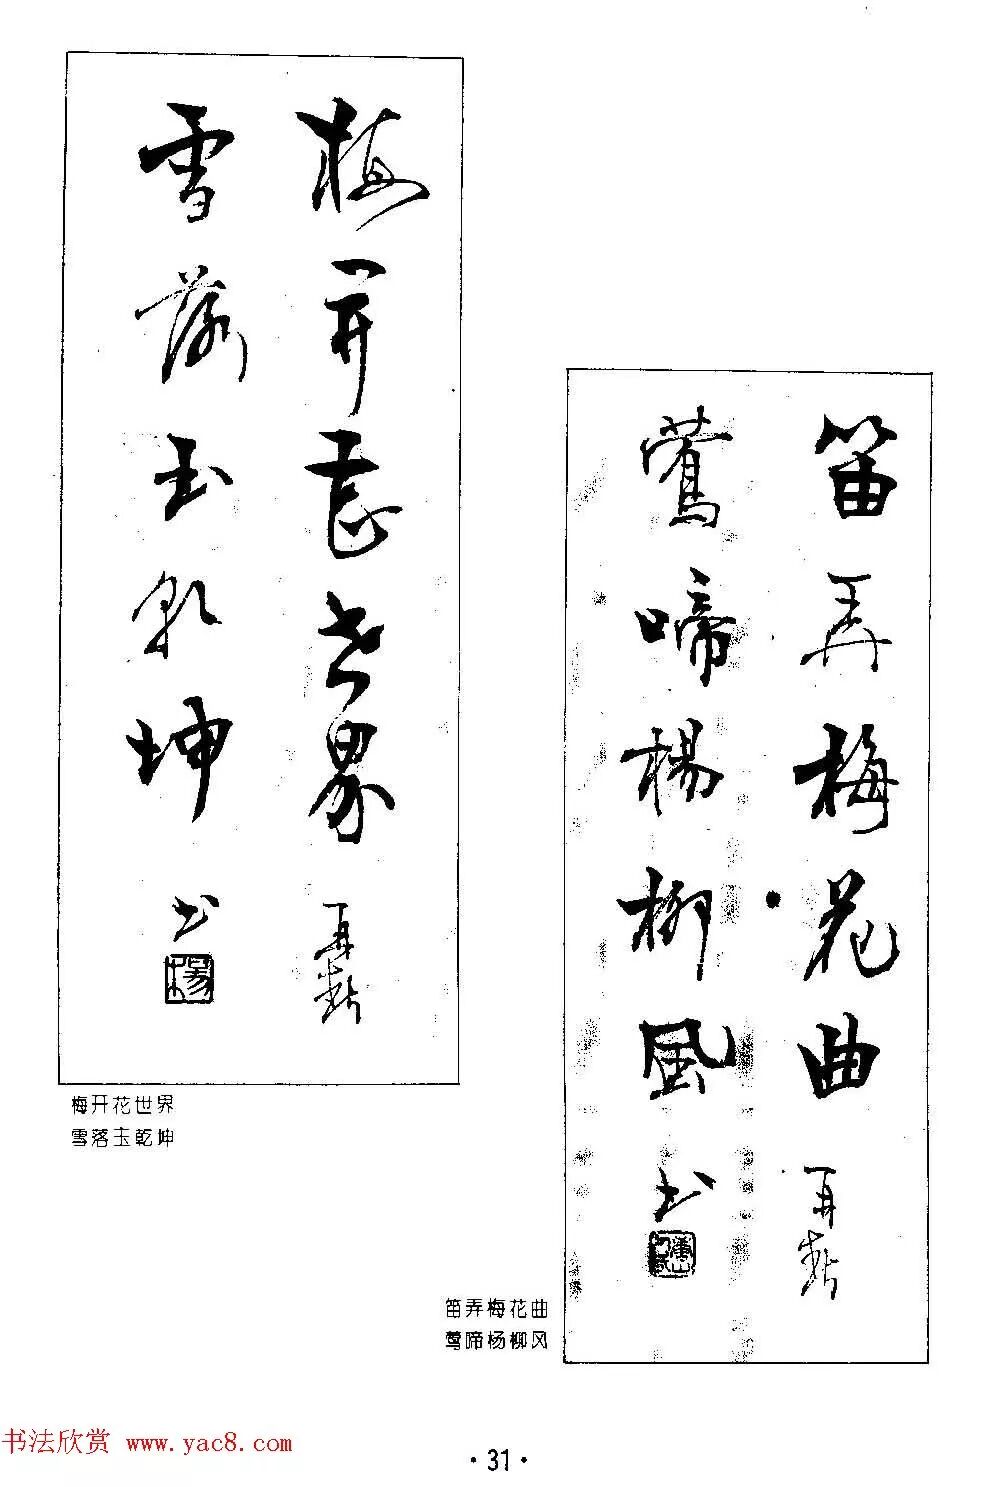 梅开花世界
雪落玉乾坤
再春书
杨
梅开花世界
雪落玉乾坤
笛弄梅花曲
莺啼杨柳风
再春
书
笛弄梅花曲
莺啼杨柳风
书法欣赏 www.yac8.com
·31·